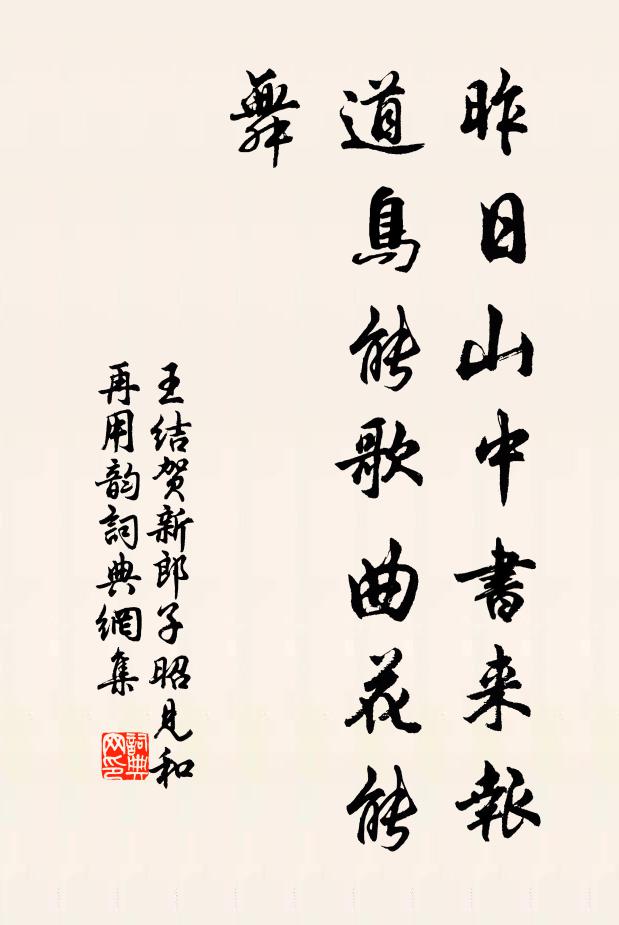 昨日山中書来報
道鳥能歌曲花能
舞
王结贺新郎子昭见和
再用韵詞典網集
詞典
网印